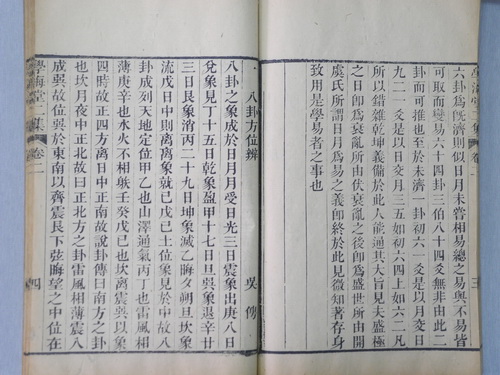 六卦爲旣濟則似日月未嘗相易總之易與不易皆
可取而變易六十四卦三伯八十四爻無非由此二
卦而可推也至於未濟一卦初六一爻是以月交日
九二一爻是以日交月三五如初六四上如六二凡
所以錯雜乾坤義備於此人能通其大旨見夫盛極
之日卽爲衰亂所由伏衰亂之後卽爲盛世所由開
虞氏所謂日月爲易之義卽終於此見微知著存身
致用是學易者之事也
五
八卦方位辨
吳俜
八卦之象成於日月月受日光三日震象出庚八日
兌象見丁十五日乾象盈甲十七日旦巽象退辛廿
三日艮象消丙二十九日坤象滅乙晦夕朔旦坎象
流戊日中則离离象就己戊己土位象見於中故八
卦成列天地定位甲乙也山澤通氣丙丁也雷風相
薄庚辛也水火不相射壬癸戊己也坎离震兌以象
四時故正四方离日中正南故說卦傳曰南方之卦
也坎月夜中正北故曰正北方之卦雷風相薄震入
成巽故位巽於東南以齊震艮下弦晦望之中位在
學海堂二集
卷二
四